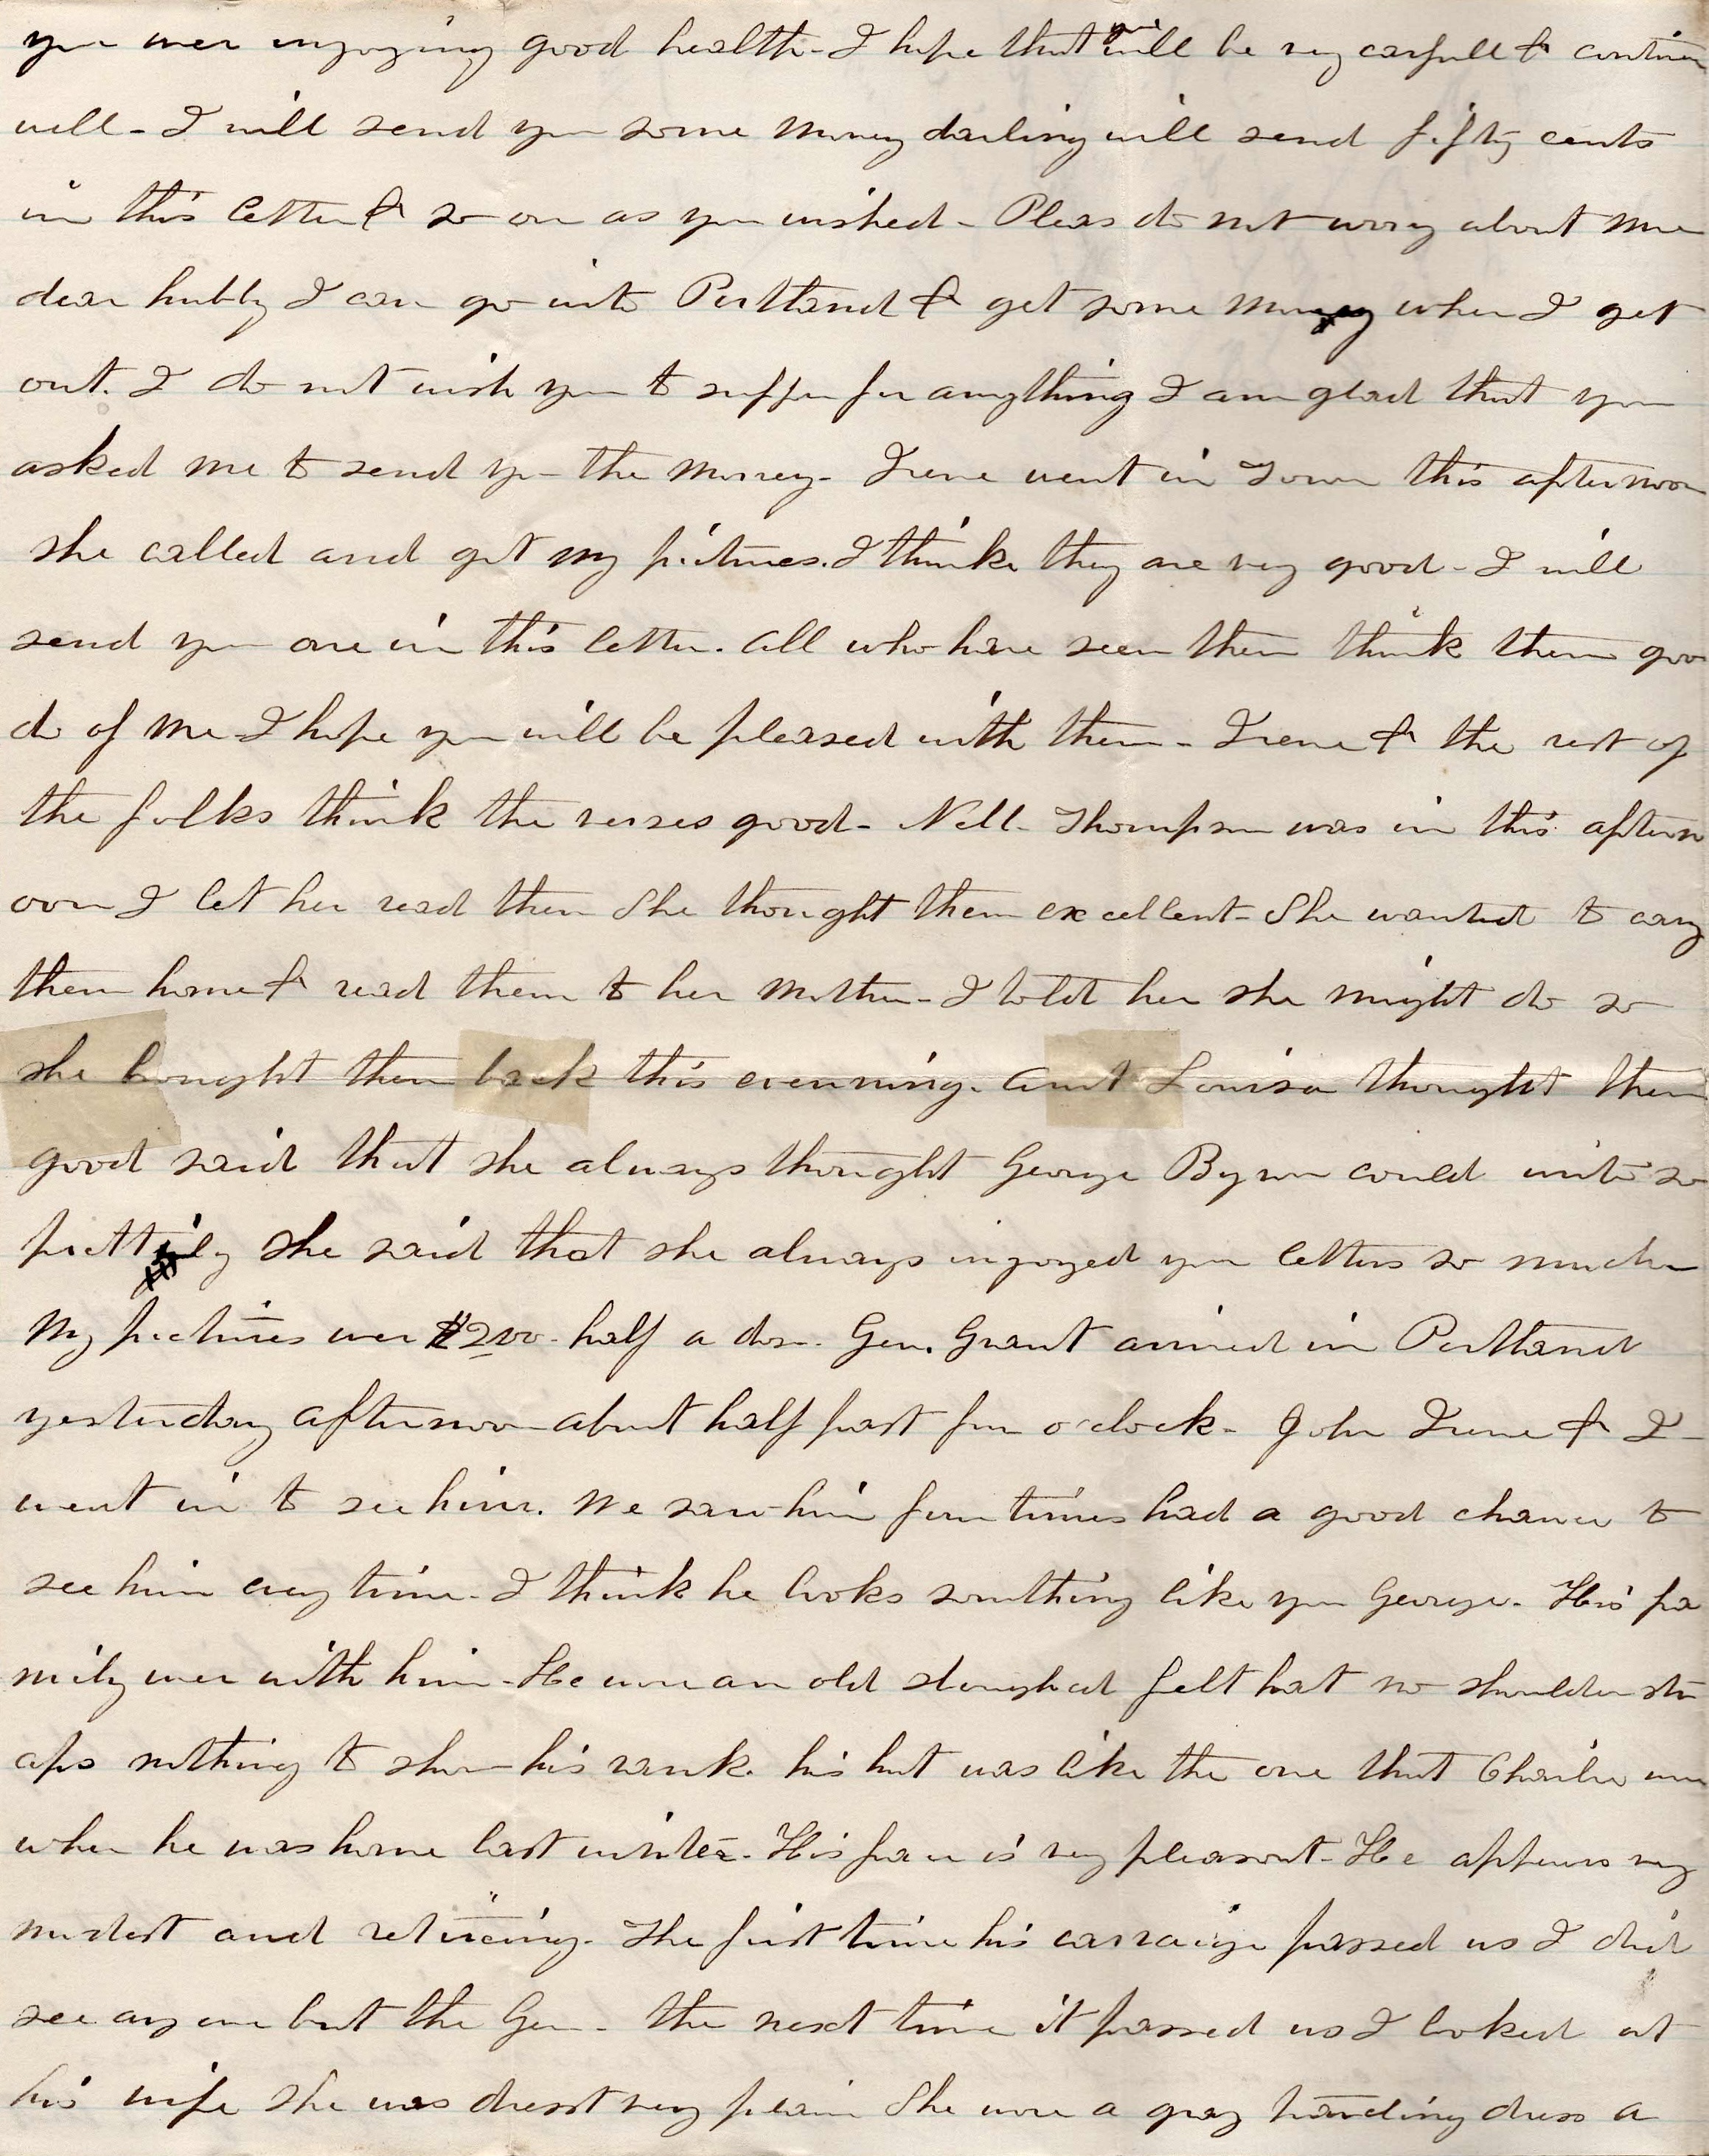 you wer injoying good health - I hope that you will be very carfull & continu
well - I will send you some money darling will send fifty cents
in this letter & so on as you wished - Pleas do not worry about me
dear hubby I can go into Portland & get some money when I get
out. I do not wish you to suffer for anything I am glad that you
asked me to send you the money - Irene went in Town this afternoon
she called and got my pictures. I think they are very good - I will
send you one in this letter. all who have seen them think them goo
d of me I hope you will be pleased with them - Irene & the rest of
the folks think the verses good - Nell - Thompson was in this aftern
oon I let her read them She thought them excellent - She wanted to cary
them home & read them to her mother - I told her she might do so
she brought them back this evenning. aunt Louisa thought them
good said that she always thought George Byron could write so
prettily she said that she always injoyed your letters so much
My pictures wer $2.00 - half a doz - Gen. Grant arrived in Portland
yesterday afternoon about half past four o'clock - John Irene & I -
went in to see him. We saw him four times had a good chance to
see him evry time - I think he looks something like you George. His fa
mily wer with him - He wore an old slouched felt hat no shoulder str
aps nothing to show his rank. his hat was like the one that Charlie wore
when he was home last winter. His face is very pleasant - He appears very
modest and retireing. The first time his carraige passed us I did
see any one but the Gen - the next time it passed us I looked at
his wife She was dresst very plain She wore a gray traveling dress a